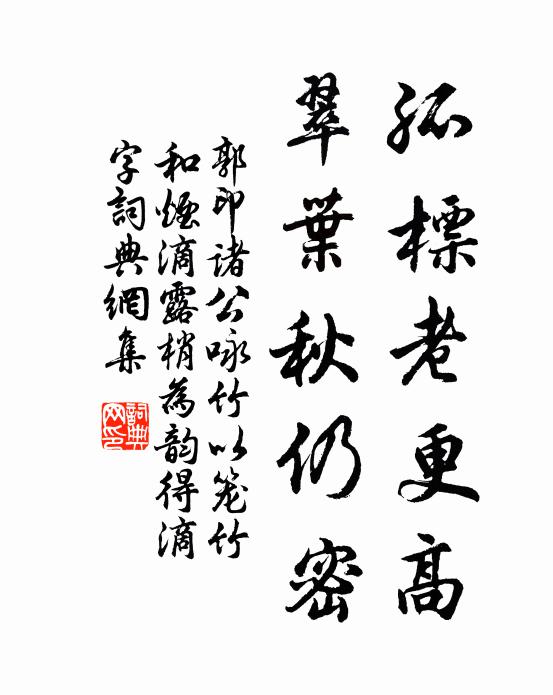 孤標老更高
翠葉秋仍密
郭印諸公咏竹以筅竹
和煙滴露梢為韵得滴
字詞典網集
詞典网印